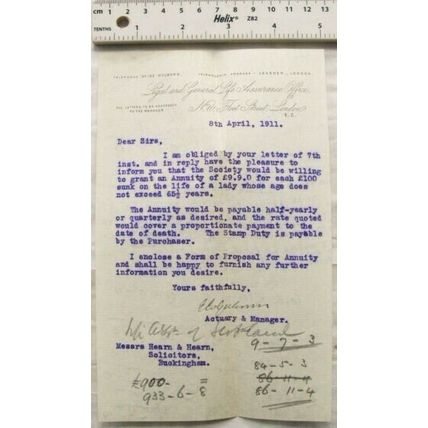 cm 1 2 3 4 5 6 7 8 9 10 11 12 13
Helix ZB2
TENTHS 1 2 3 4 5
TELEPHONE HOLBORN. TELEGRAPHIC ADDRESS LONDON.
Legal and General Life Assurance Office,
ALL LETTERS TO BE ADDRESSED
TO THE MANAGER.
No. 10, Fleet Street, London,
E.C.
8th April, 1911.
Dear Sirs,
I am obliged by your letter of 7th
inst. and in reply have the pleasure to
inform you that the Society would be willing
to grant an Annuity of £9.9.0 for each £100
sunk on the life of a lady whose age does
not exceed 65½ years.
The Annuity would be payable half-yearly
or quarterly as desired, and the rate quoted
would cover a proportionate payment to the
date of death. The Stamp Duty is payable
by the Purchaser.
I enclose a Form of Proposal for Annuity
and shall be happy to furnish any further
information you desire.
Yours faithfully,
Actuary & Manager.
of Scotland
9-7-3
Messrs Hearn & Hearn,
Solicitors,
Buckingham.
84-5-3
86-11-4
86-11-4
£900-
933-6-8